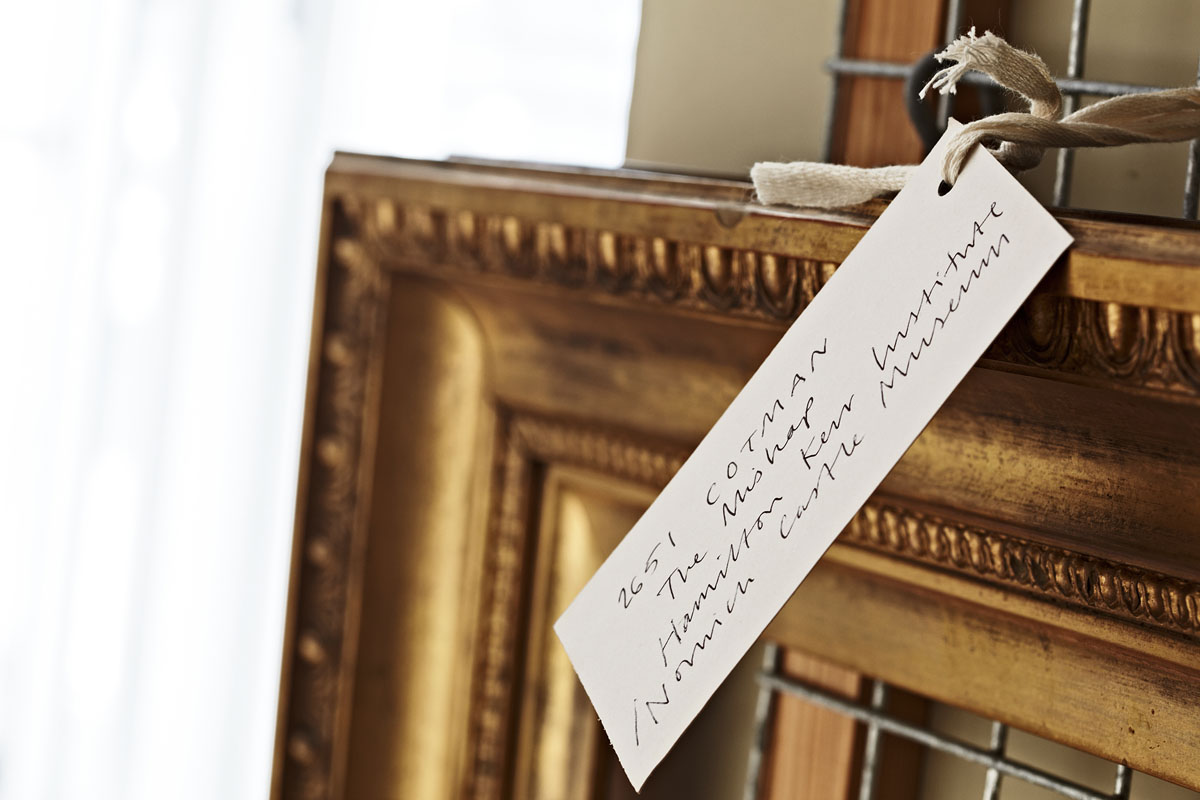 2651 COTMAN
The Mishap
Hamilton Kerr Institute
/Norwich Castle Museum